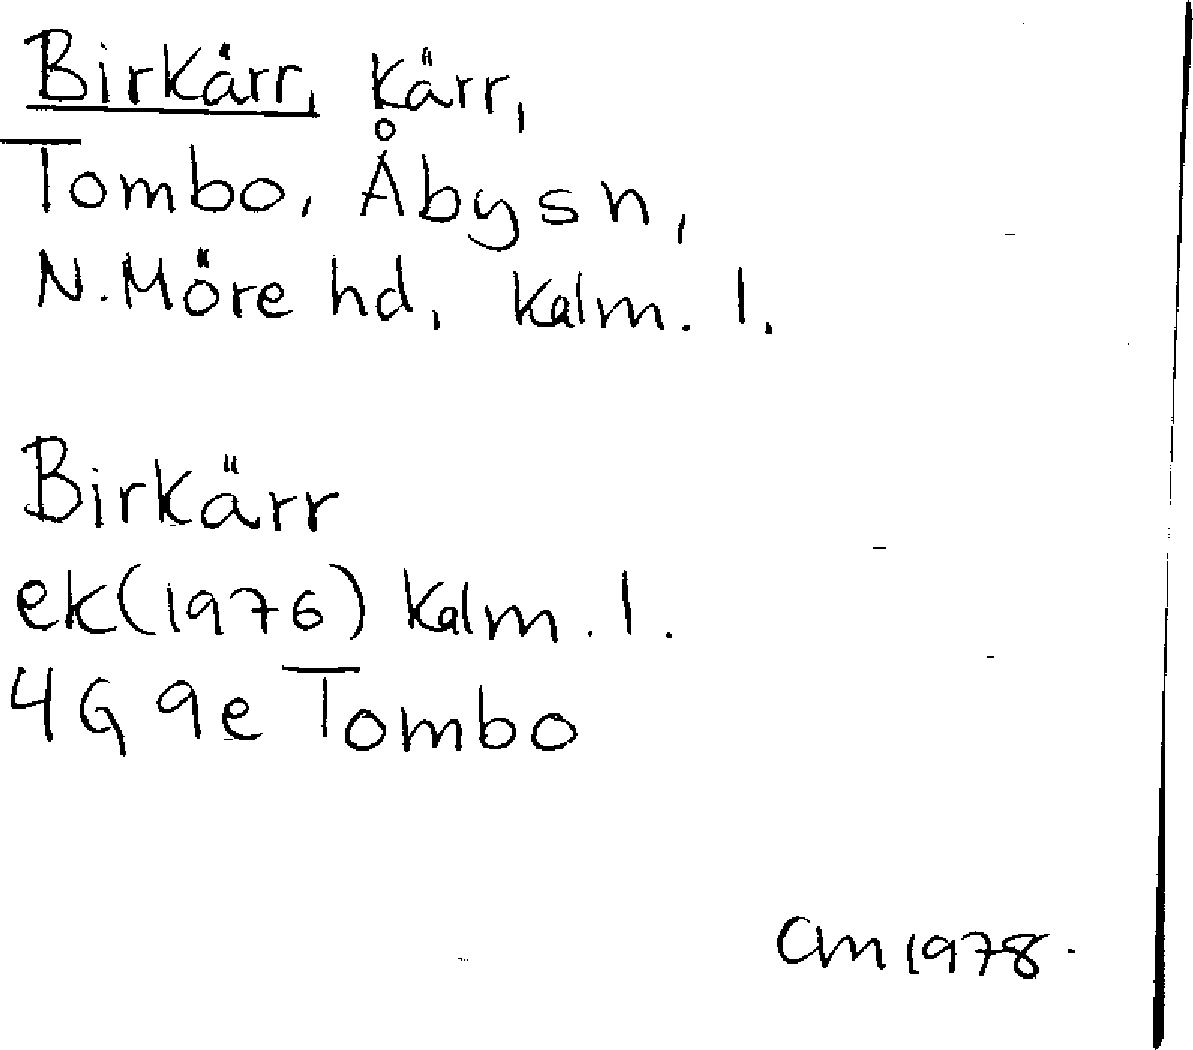 Birkärr, kärr,
Tombo, Åby sn,
N. Möre hd, Kalm. l.
Birkärr
ek (1976) Kalm. l.
4G 9e Tombo
CM 1978.